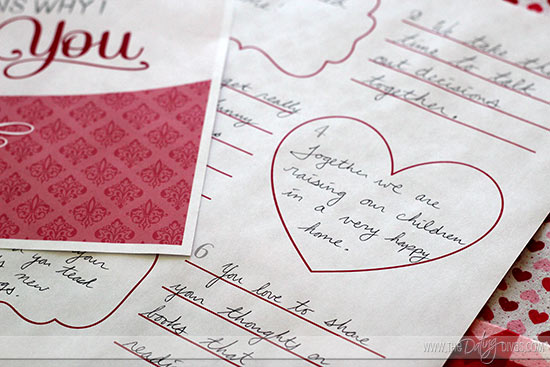 NS WHY I
You
2
take the
time to talk
out decisions
together.
really
4
Together we are
raising our children
in a very happy
home.
your
you
new
6
You love to share
your thoughts on
books that
WWW.THEDatingDIVAS.COM